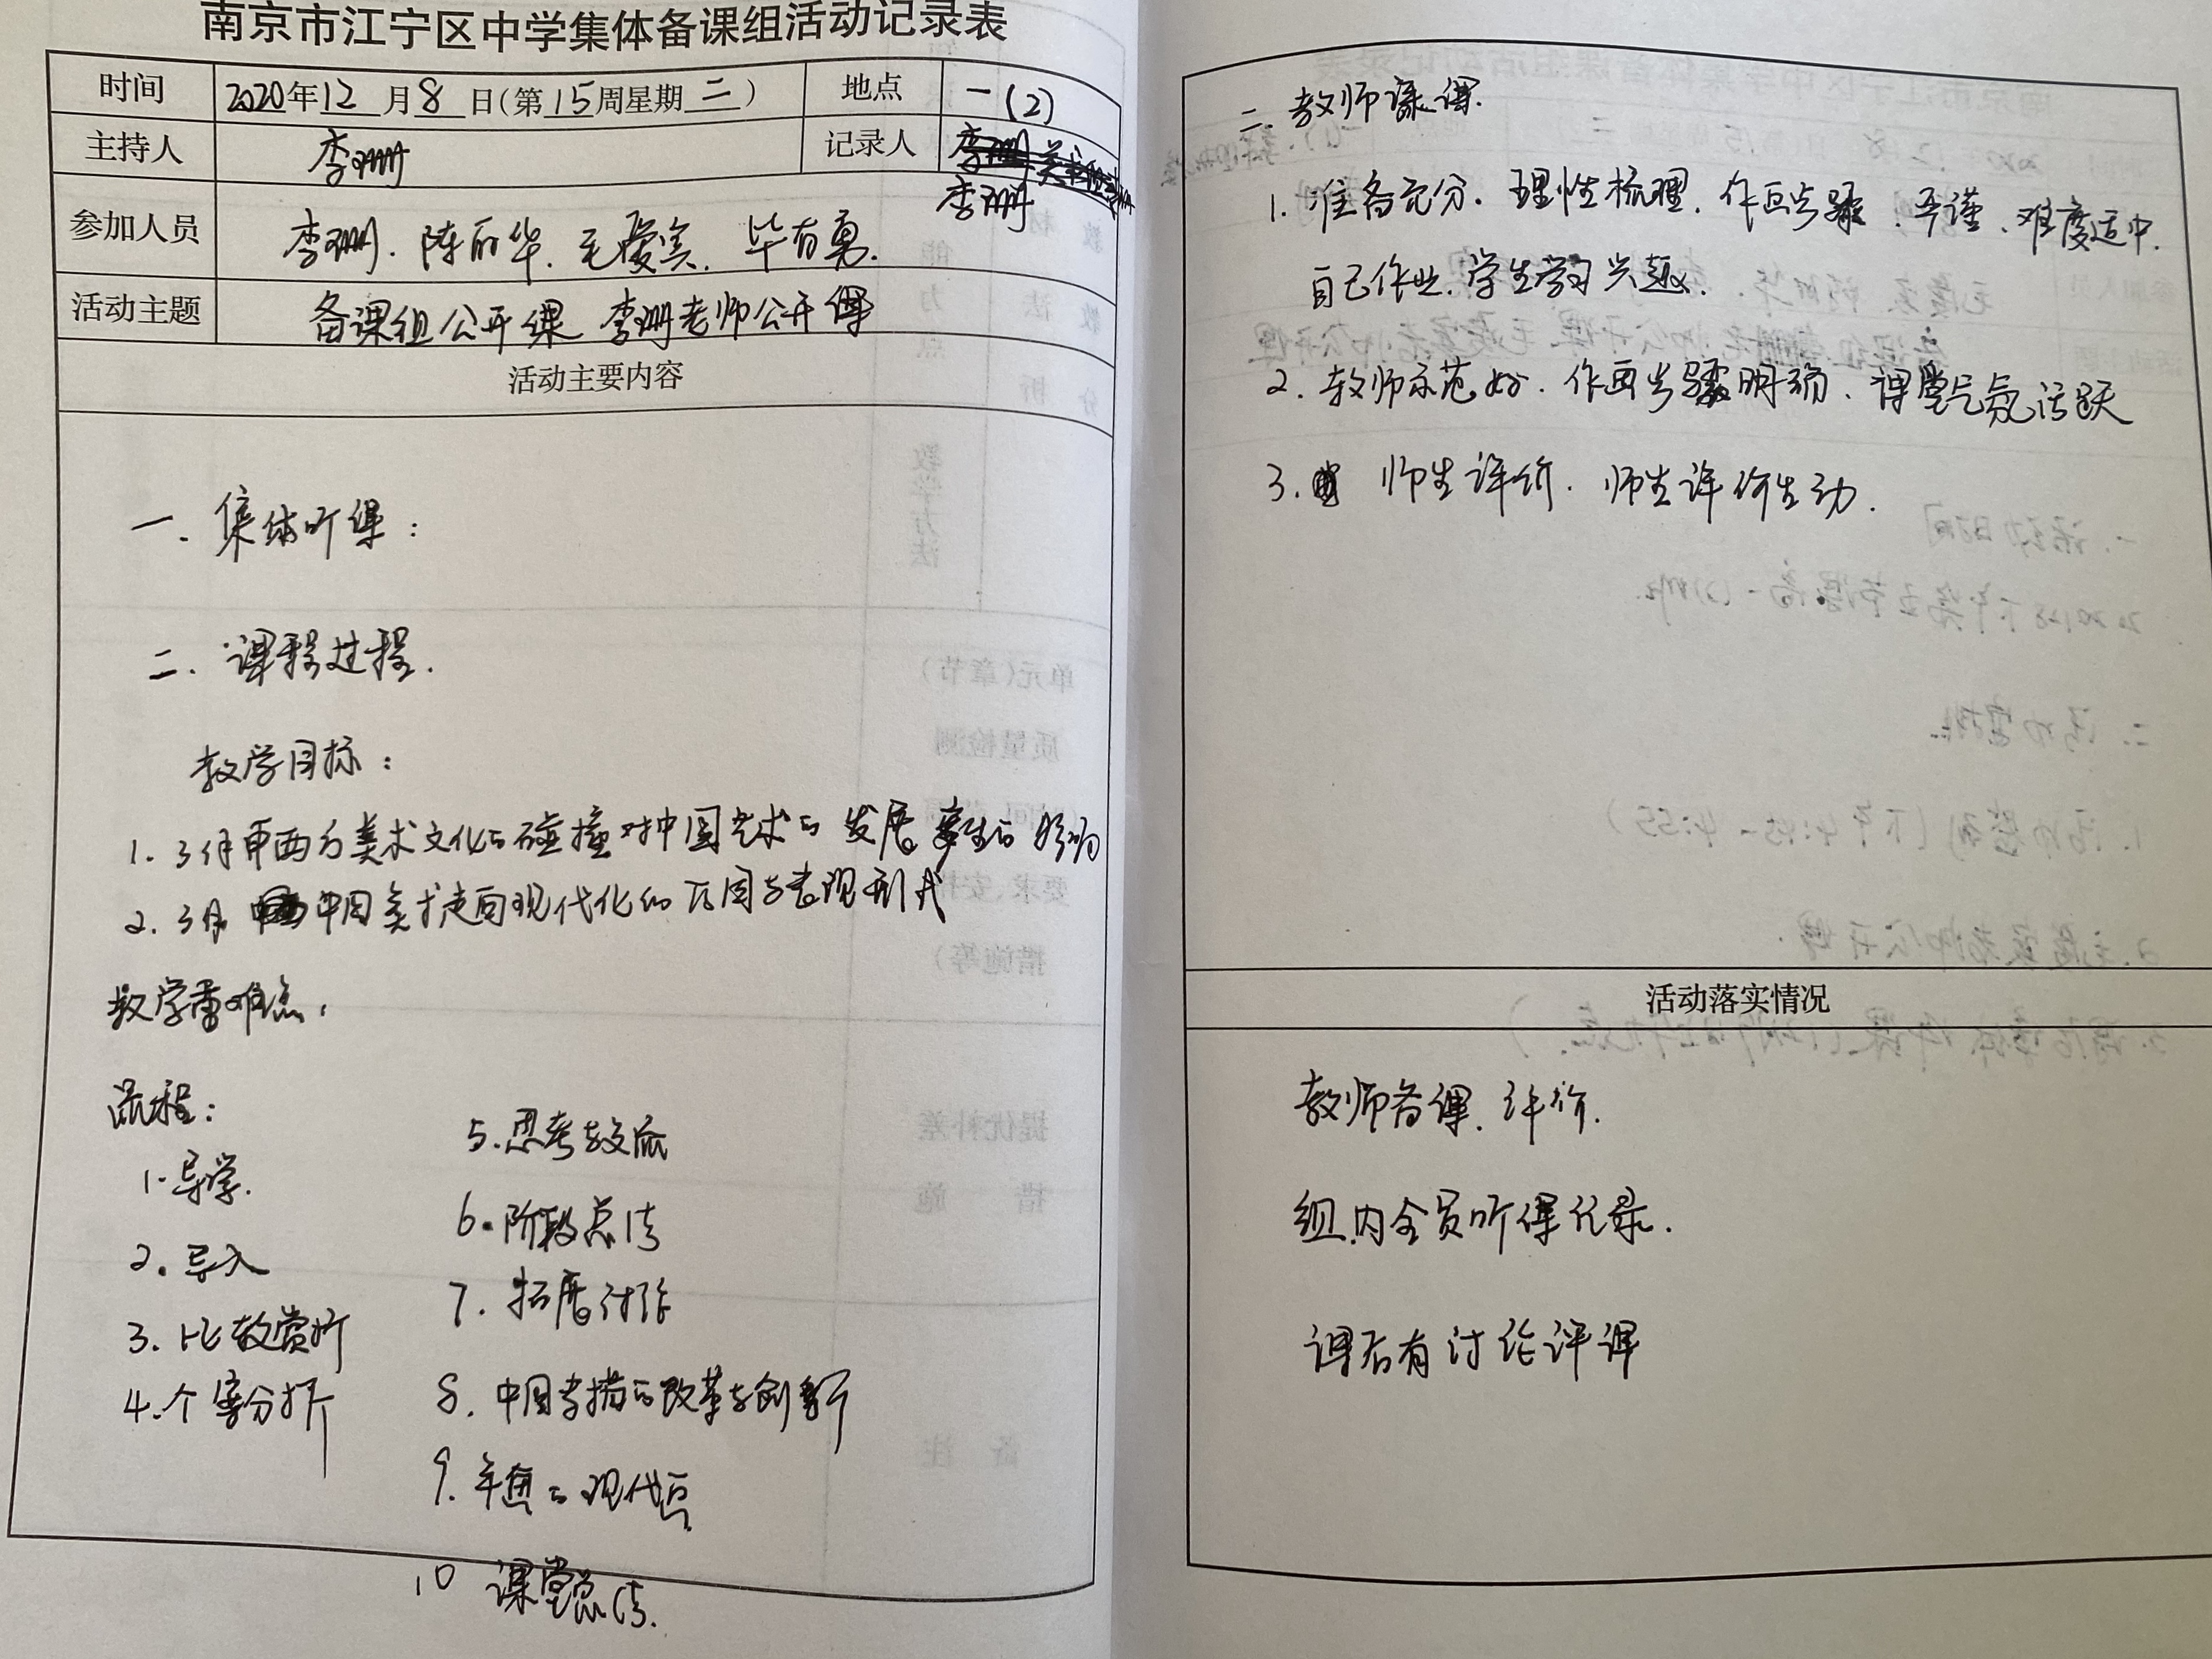 南京市江宁区中学集体备课组活动记录表
时间 2020年12月8日(第15周星期二) 地点 一(2)
主持人 李珊 记录人 李珊
参加人员 李珊、陈丽华、毛爱宾、毕有勇.
活动主题 备课组公开课 李珊老师公开课
活动主要内容
一. 集体听课:
二. 课程过程.
教学目标:
1. 了解中西方美术文化的碰撞对中国艺术的发展产生的影响
2. 了解中国美术走向现代化的原因与表现形式
教学重难点:
流程:
1. 导学.
2. 导入
3. 比较赏析
4. 个案分析
5. 思考与交流
6. 阶段总结
7. 拓展讨论
8. 中国书描的改革与创新
9. 年画的现代
10 课堂总结.
二. 教师课.
1. 准备充分. 理性梳理. 作画步骤. 严谨. 难度适中.
自己作业. 学生学习兴趣.
2. 教师示范好. 作画步骤明确. 课堂气氛活跃
3. 师生评价. 师生评价生动.
活动落实情况
教师备课. 评价.
组内全员听课记录.
课后有讨论评课